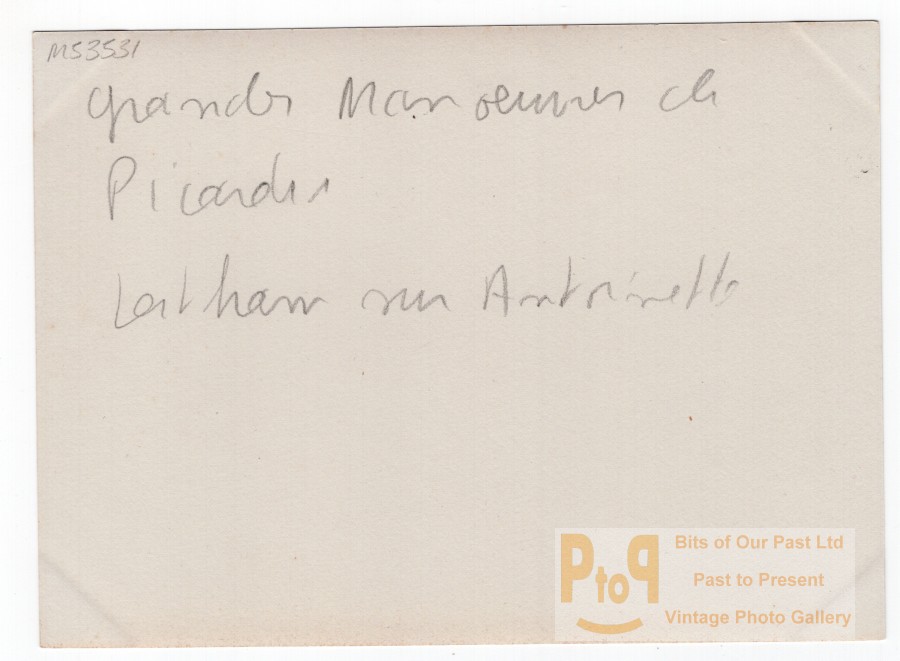 M53531
Grandes Manoeuvres de
Picardie
Latham sur Antoinette
PtoP
Bits of Our Past Ltd
Past to Present
Vintage Photo Gallery